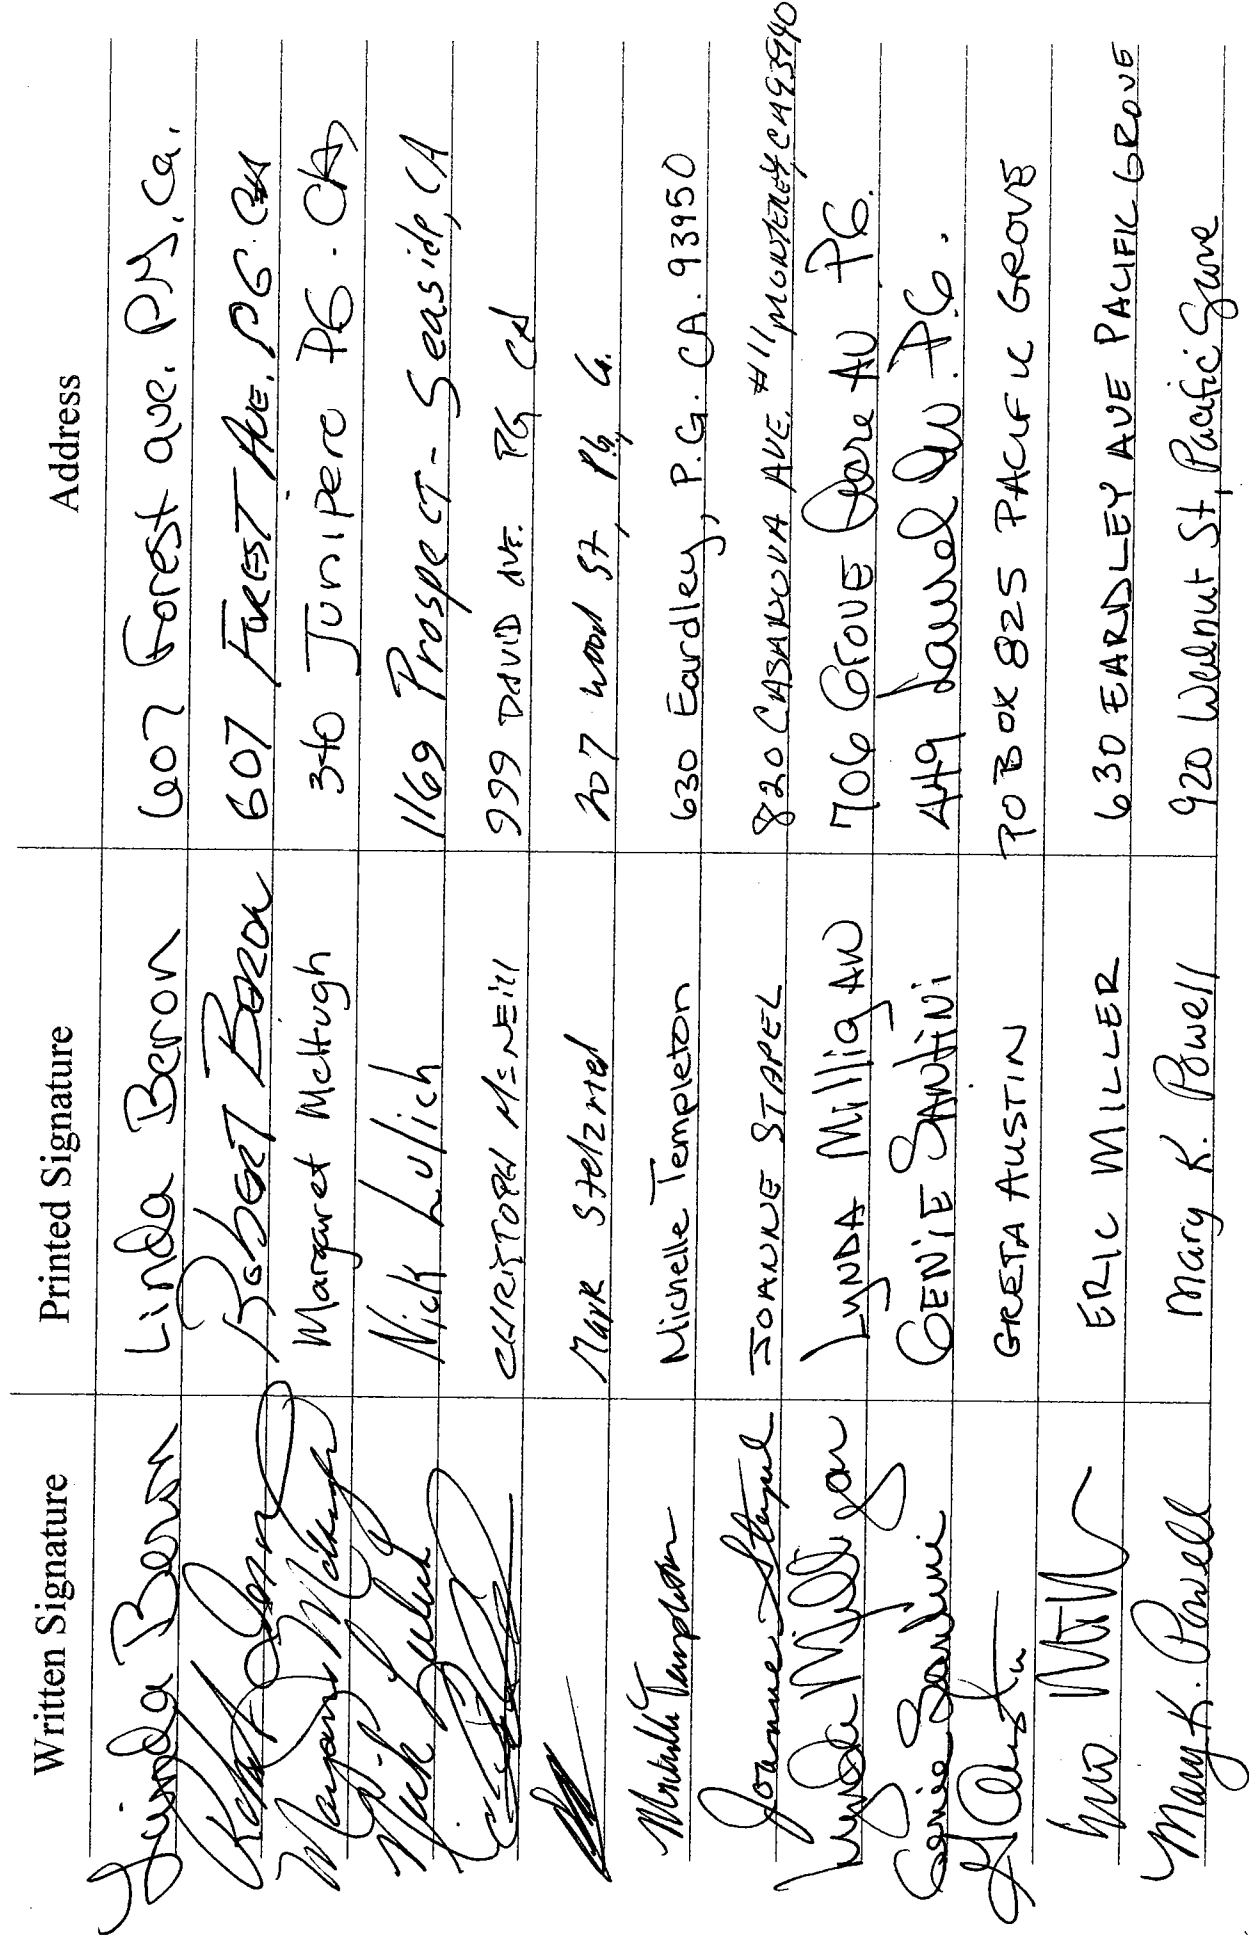 Written Signature Printed Signature Address
Linda Beron Linda Beron 607 Forest ave. P.G. Ca.
Robert Beron 607 FOREST AVE. PG. CA
Margaret McHugh Margaret McHugh 340 Junipero PG. CA
Nick Lulich Nick Lulich 1169 Prospect - Seaside, CA
CHRISTOPH McNEill 999 DAVID AVE. PG, CA
Mark Stelzried 207 Wood St, PG, Ca.
Michelle Templeton Michelle Templeton 630 Eardley, P.G. CA. 93950
Joanne Stapel JOANNE STAPEL 820 CASANOVA AVE. #11 MONTEREY CA 93940
Lynda Milligan LYNDA MilligAN 706 GrOVE AV PG.
Genie Santini GENIE SANtiNi 449 Laurel Av P.G.
G Austin GRETA AUSTIN PO BOX 825 PACIFIC GROVE
Eric Miller ERIC MILLER 630 EARDLEY AVE PACIFIC GROVE
Mary K. Powell Mary K. Powell 920 Walnut St, Pacific Grove